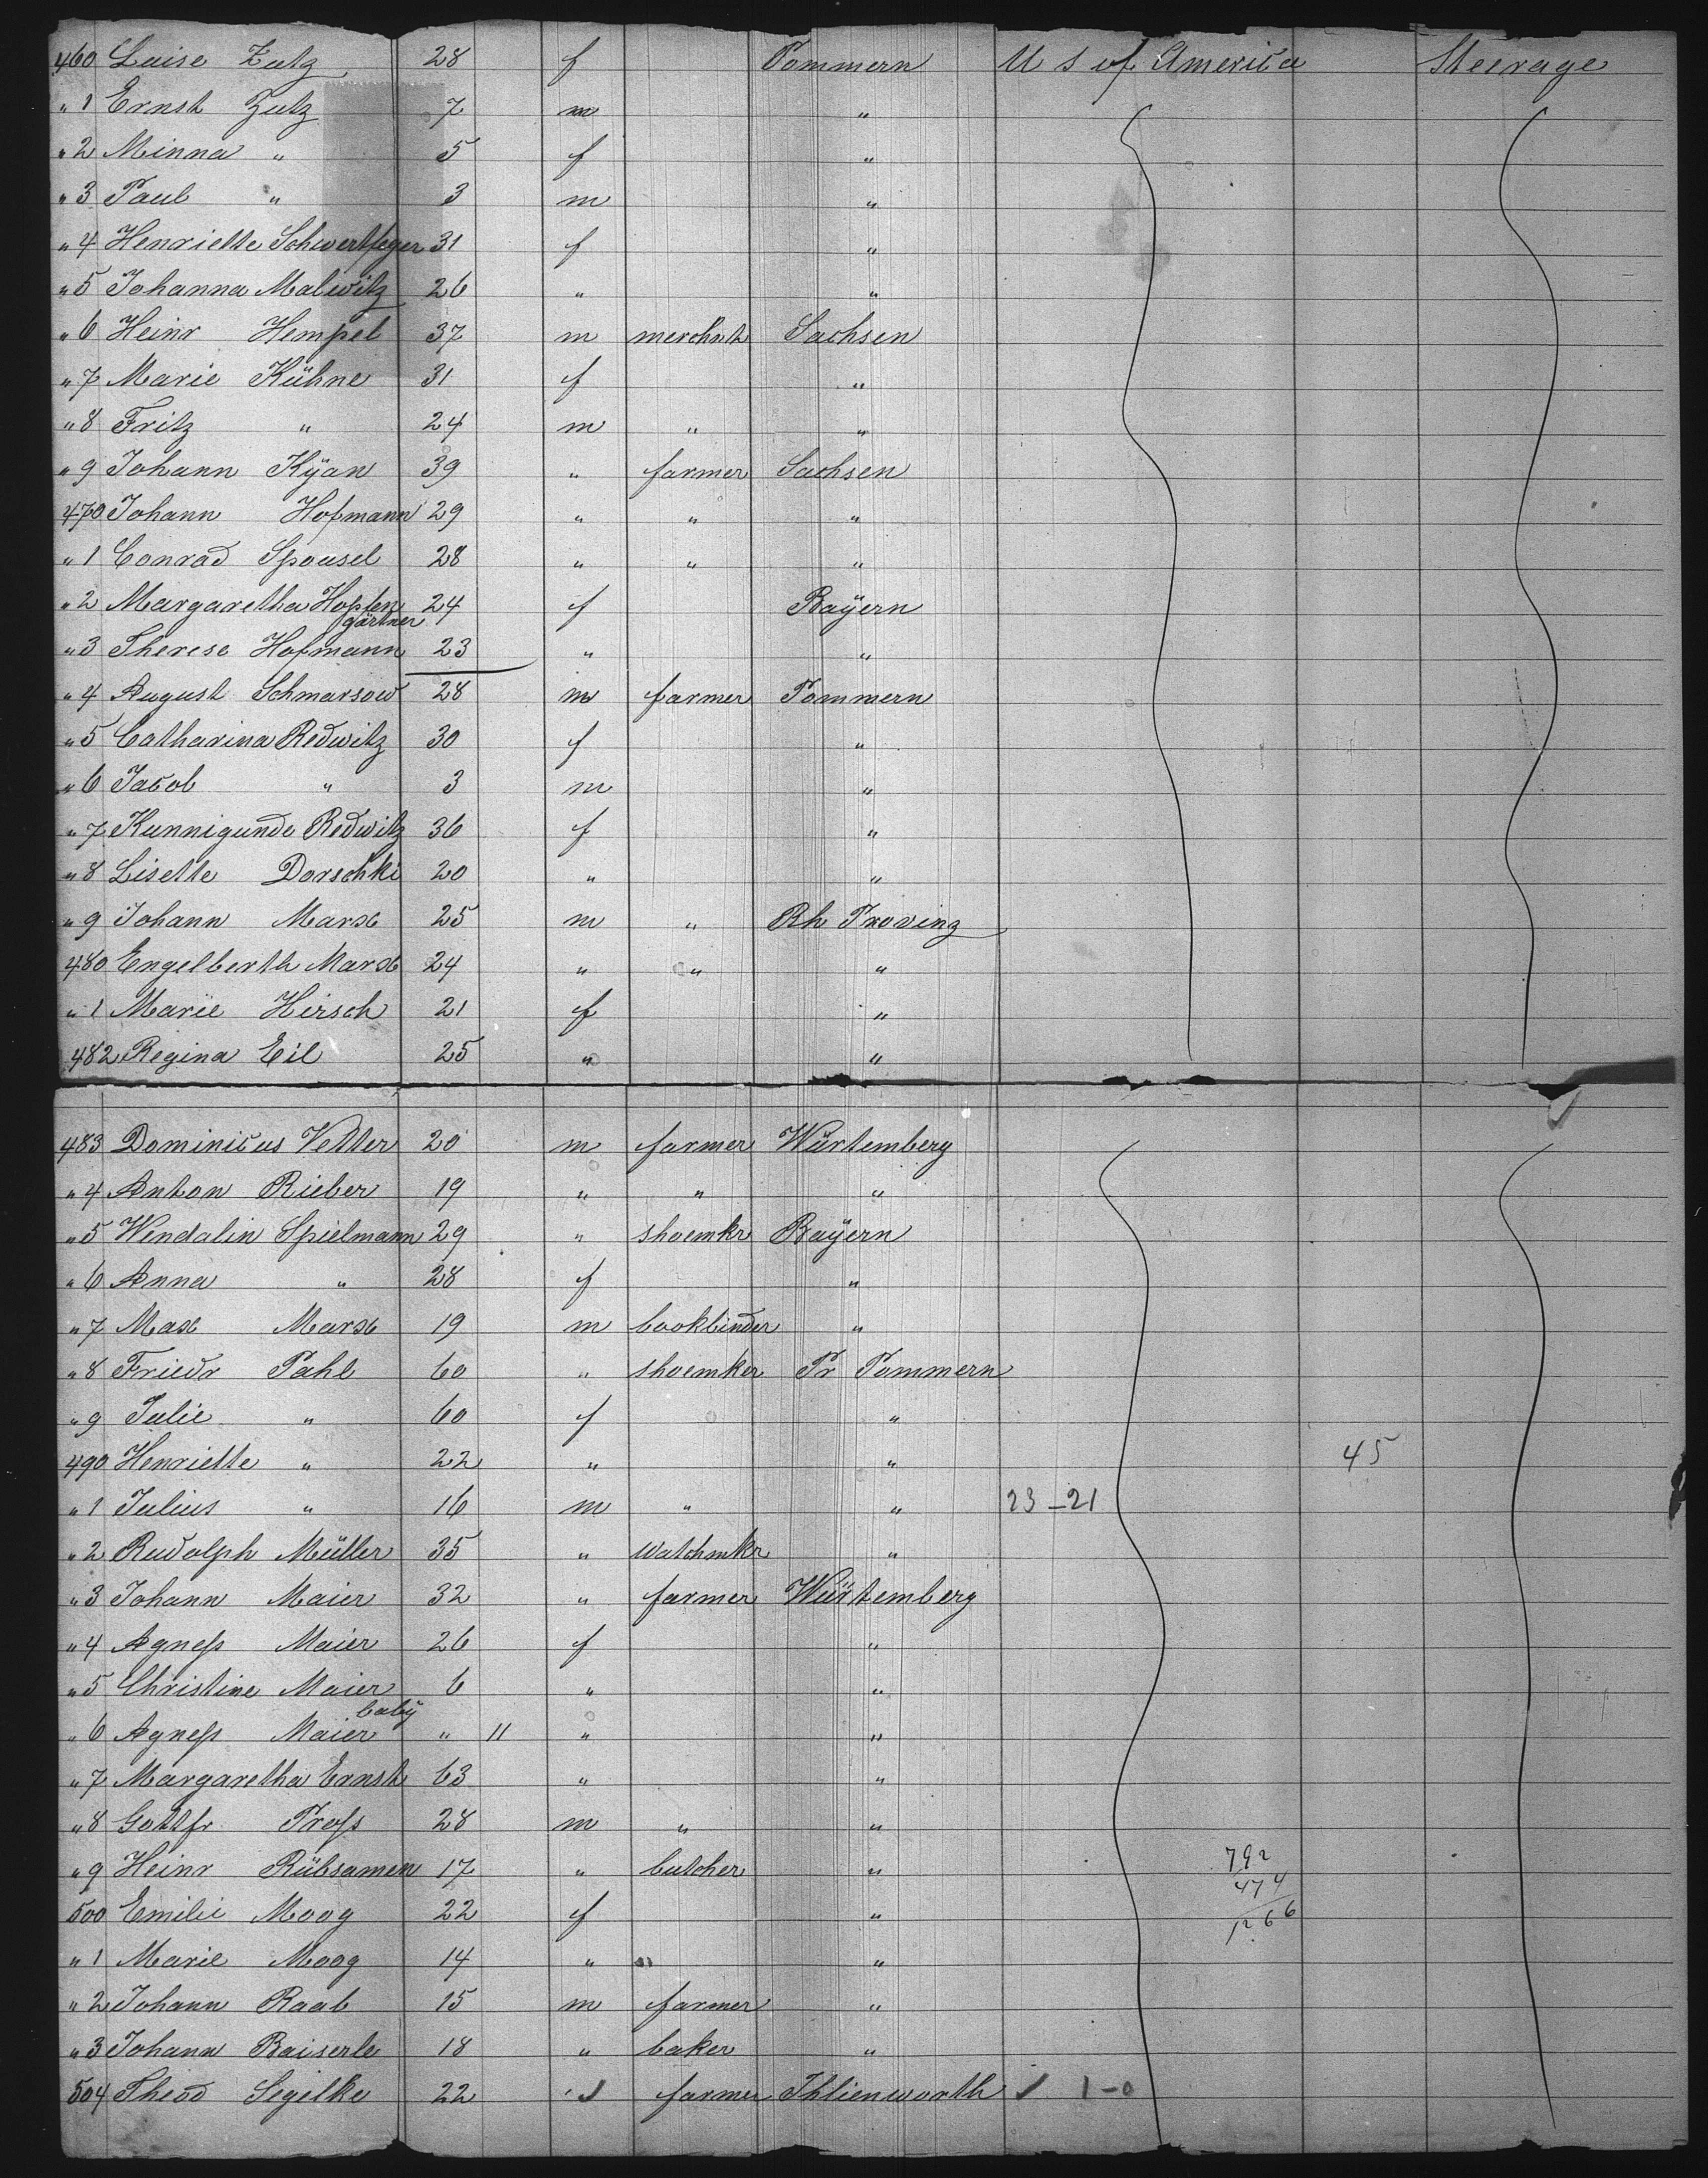 460 Luise Zutz 28 f Pommern U S of America Steerage
" 1 Ernst Zutz 7 m "
" 2 Minna " 5 f "
" 3 Paul " 3 m "
" 4 Henriette Schwertfeger 31 f "
" 5 Johanna Malwitz 26 " "
" 6 Heinr Hempel 37 m merchnt Sachsen
" 7 Marie Kühne 31 f "
" 8 Fritz " 24 m " "
" 9 Johann Kÿan 39 " farmer Sachsen
470 Johann Hofmann 29 " " "
" 1 Conrad Spousel 28 " " "
" 2 Margaretha Hopfen 24 f Baÿern
gärtner
" 3 Therese Hofmann 23 " "
" 4 August Schmarsow 28 m farmer Pommern
" 5 Catharina Redwitz 30 f "
" 6 Jacob " 3 m "
" 7 Kunnigunde Redwitz 36 f "
" 8 Lisette Dorschki 20 " "
" 9 Johann Marx 25 m " Rh Provinz
480 Engelberth Marx 24 " " "
" 1 Marie Hirsch 21 f "
482 Regina Eil 25 " "
483 Dominicus Vetter 20 m farmer Würtemberg
" 4 Anton Rieber 19 " " "
" 5 Wendalin Spielmann 29 " shoemkr Baÿern
" 6 Anna " 28 f "
" 7 Max Marx 19 m bookbinder "
" 8 Friedr Pahl 60 " shoemker Pr Pommern
" 9 Julie " 60 f "
490 Henriette " 22 " " 45
" 1 Julius " 16 m " " 23-21
" 2 Rudolph Müller 35 " watchmkr "
" 3 Johann Maier 32 " farmer Würtemberg
" 4 Agneſs Maier 26 f "
" 5 Christine Maier 6 " "
baby
" 6 Agneſs Maier " 11 " "
" 7 Margaretha Ernst 63 " "
" 8 Gottfr Proſs 28 m " "
" 9 Heinr Rübsamen 17 " butcher " 792
474
500 Emilie Moog 22 f " 1266
" 1 Marie Moog 14 " " "
" 2 Johann Raab 15 m farmer "
" 3 Johann Baiserle 18 " baker "
504 Theod Segelke 22 " farmer Ihlienworth 1-0